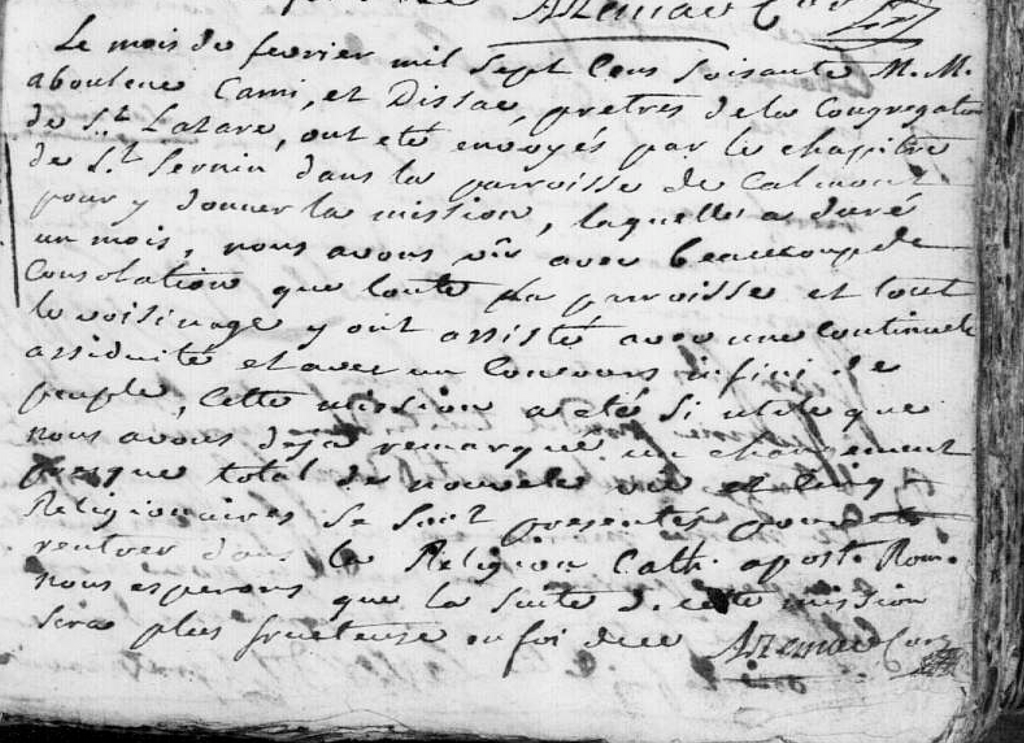 Le mois de fevrier mil sept Cens soisante M. M.
aboulene Cami, et Dissac, pretres de la Congregation
de St. Lazare, ont eté envoyés par le chapitre
de St. Sernin dans la parroisse de Calmont
pour y donner la mission, laquelle a duré
un mois, nous avons vû avec beaucoup de
Consolation que toute la parroisse et tout
le voisinage y ont assisté avec une Continuele
assiduité et avec un Concours infini de
peuple, Cette mission a eté si utile que
nous avons deja remarque un changement
presque total de nouvele vie et Cinq
Religionaires se sont presentés pour
rentrer dans la Religion Cath. apost. Rom.
nous esperons que la suite de cete mission
sera plus fructeuse en foi de ce